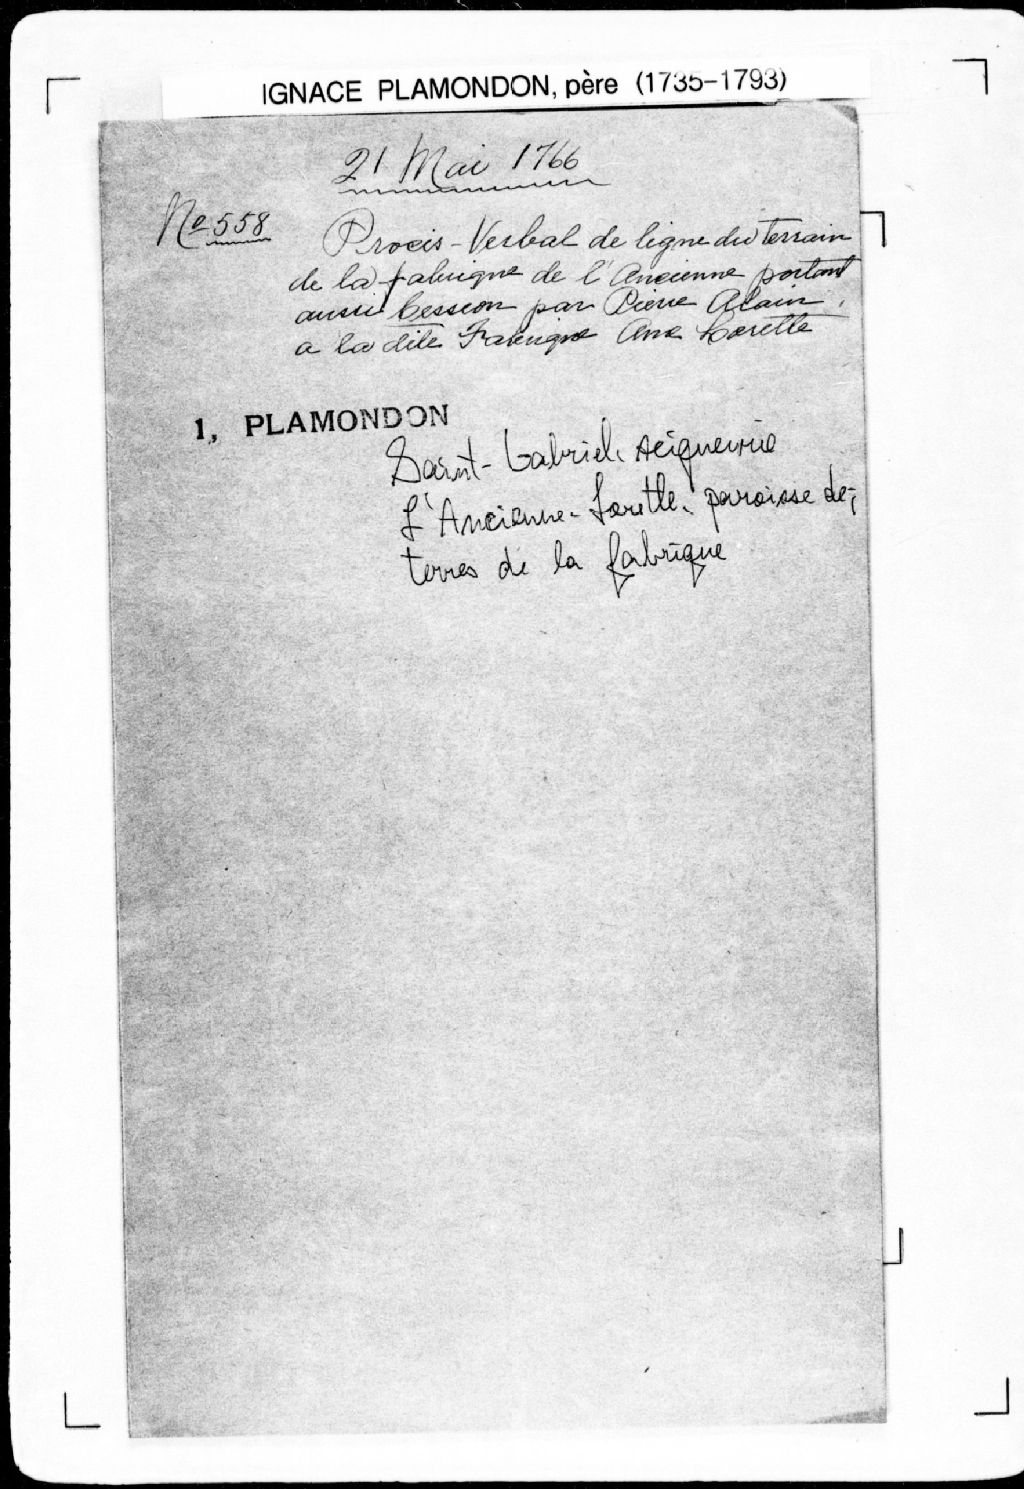 IGNACE PLAMONDON, père (1735-1793)
21 Mai 1766
No 558
Procès-Verbal de ligne du terrain
de la fabrique de l'Ancienne portant
aussi Cession par Pierre Alain,
a la dite Fabrique Anc Lorette
1, PLAMONDON
Saint-Gabriel, seigneurie
L'Ancienne-Lorette, paroisse de;
terres de la fabrique